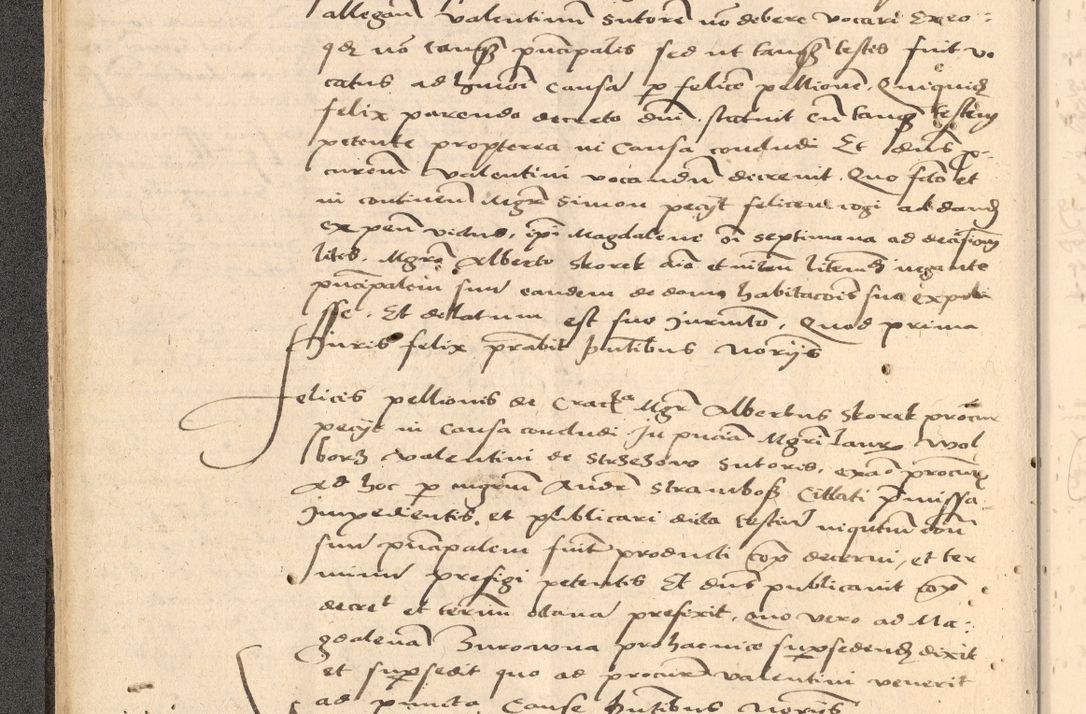 allegavit Valentinum sutorem no debere vocari Ex eo :
qz no tanqz pncipalis sed ut tanqz testis fuit vo
catus ad hmoi causa p felice pellione. Quiquid
felix parendo decreto dni statuit eu tanqz testem
petente propterea in causa concludi Et dns p
curem Valentini vocandu decrevit. Quo fcto et
in continen Mgr Simon pecyt felicem cogi ad dand
expen victus. ipi Magdalene oi septimana ad decisione
litis. Mgro Alberto Skorek litem negante
pncipalem suu eandem de domo habitacois sua expuli
sse. Et delatum est suo Jurmto. Quod prima
Juris felix prabit pntibus Noryis
Felicis pellionis de Crac Mgr Albertus Skorek procur
pecyt in causa concludi In pncia Mgri Laur Wol
borz Valentini de Strzezow sutoris, procur
Ad hoc p nigrum Andr Strambosz Citati pmissa
Impedientis. et publicari dicta testiu
suu pncipalem fuit producti cop decerni, et ter
minu prefigi petentis Et dns publicavit cop
decret et termi octava prefixit. Quo vero ad Ma:
gdalena Zurowna pro hac vice supsedend dixit
et supsedit quo ad procure Valentini venerit
ad puncta Cause pntibus Noryis